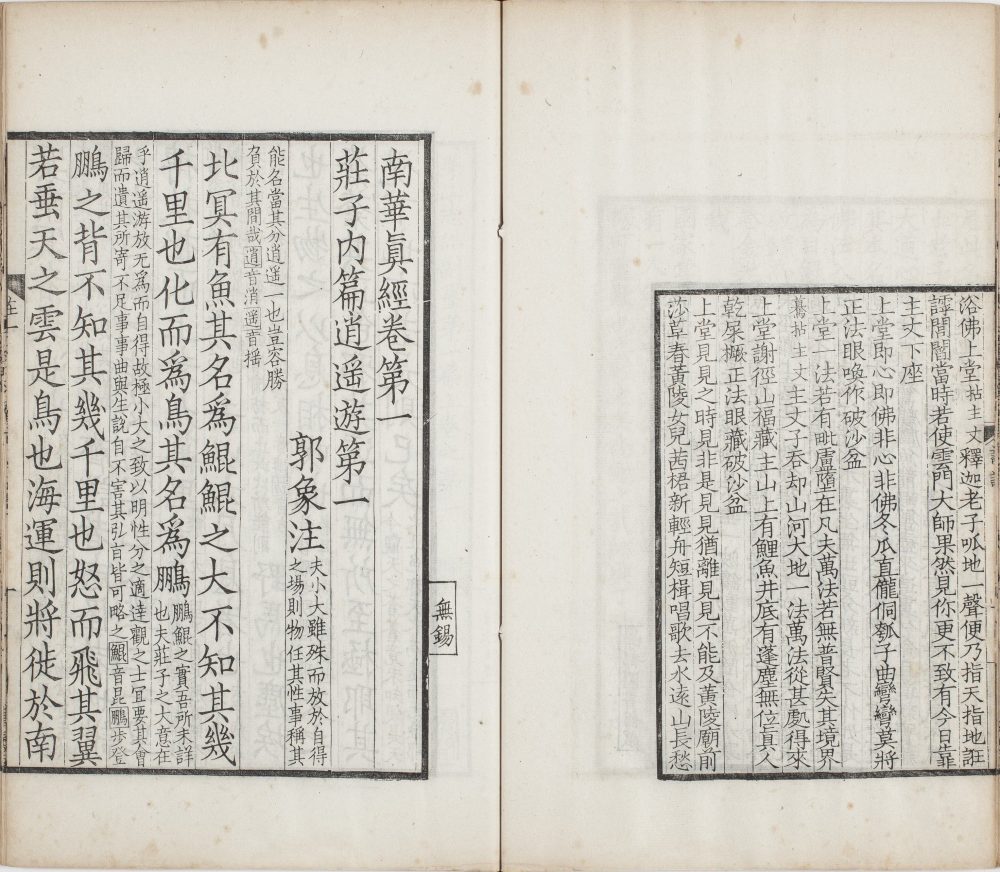 浴佛上堂拈主丈釋迦老子呱地一聲便乃指天指地誑
謼閙闇當時若使雲門大師果然見你更不致有今日靠
主丈下座
上堂即心即佛非心非佛冬瓜直儱侗瓠子曲彎彎莫將
正法眼喚作破沙盆
上堂一法若有毗盧墮在凡夫萬法若無普賢失其境界
驀拈主丈主丈子吞却山河大地一法萬法從甚處得來
上堂謝徑山福藏主山上有鯉魚井底有蓬塵無位真人
乾屎橛正法眼藏破沙盆
上堂見見之時見非是見見猶離見見不能及黃陵廟前
莎草春黃陵女兒茜裙新輕舟短楫唱歌去水遠山長愁
南華眞經卷第一
莊子內篇逍遥遊第一
郭象注
夫小大雖殊而放於自得
之場則物任其性事稱其
能各當其分逍遥一也豈容勝
負於其間哉逍音消遥音摇
北冥有魚其名爲鯤鯤之大不知其幾
千里也化而爲鳥其名爲鵬
鵬鯤之實吾所未詳
也夫莊子之大意在
乎逍遥游放无爲而自得故極小大之致以明性分之適達觀之士冝要其會
歸而遺其所寄不足事事曲與生說自不害其弘旨皆可略之鯤音昆鵬步登
鵬之背不知其幾千里也怒而飛其翼
若垂天之雲是鳥也海運則將徙於南
無錫